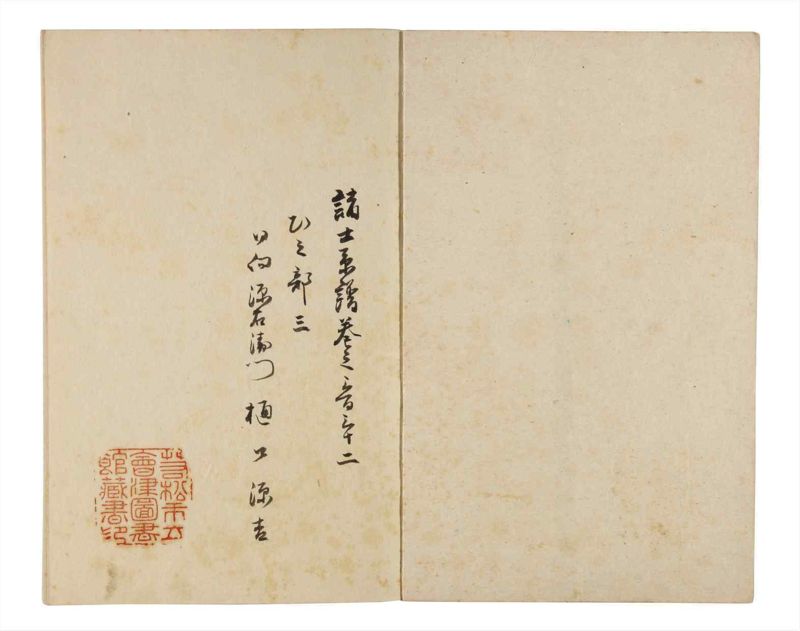 諸士系譜巻之百三十二
ひ之部 三
日向源右衛門 樋口源吉
若松市立
會津圖書
館藏書印